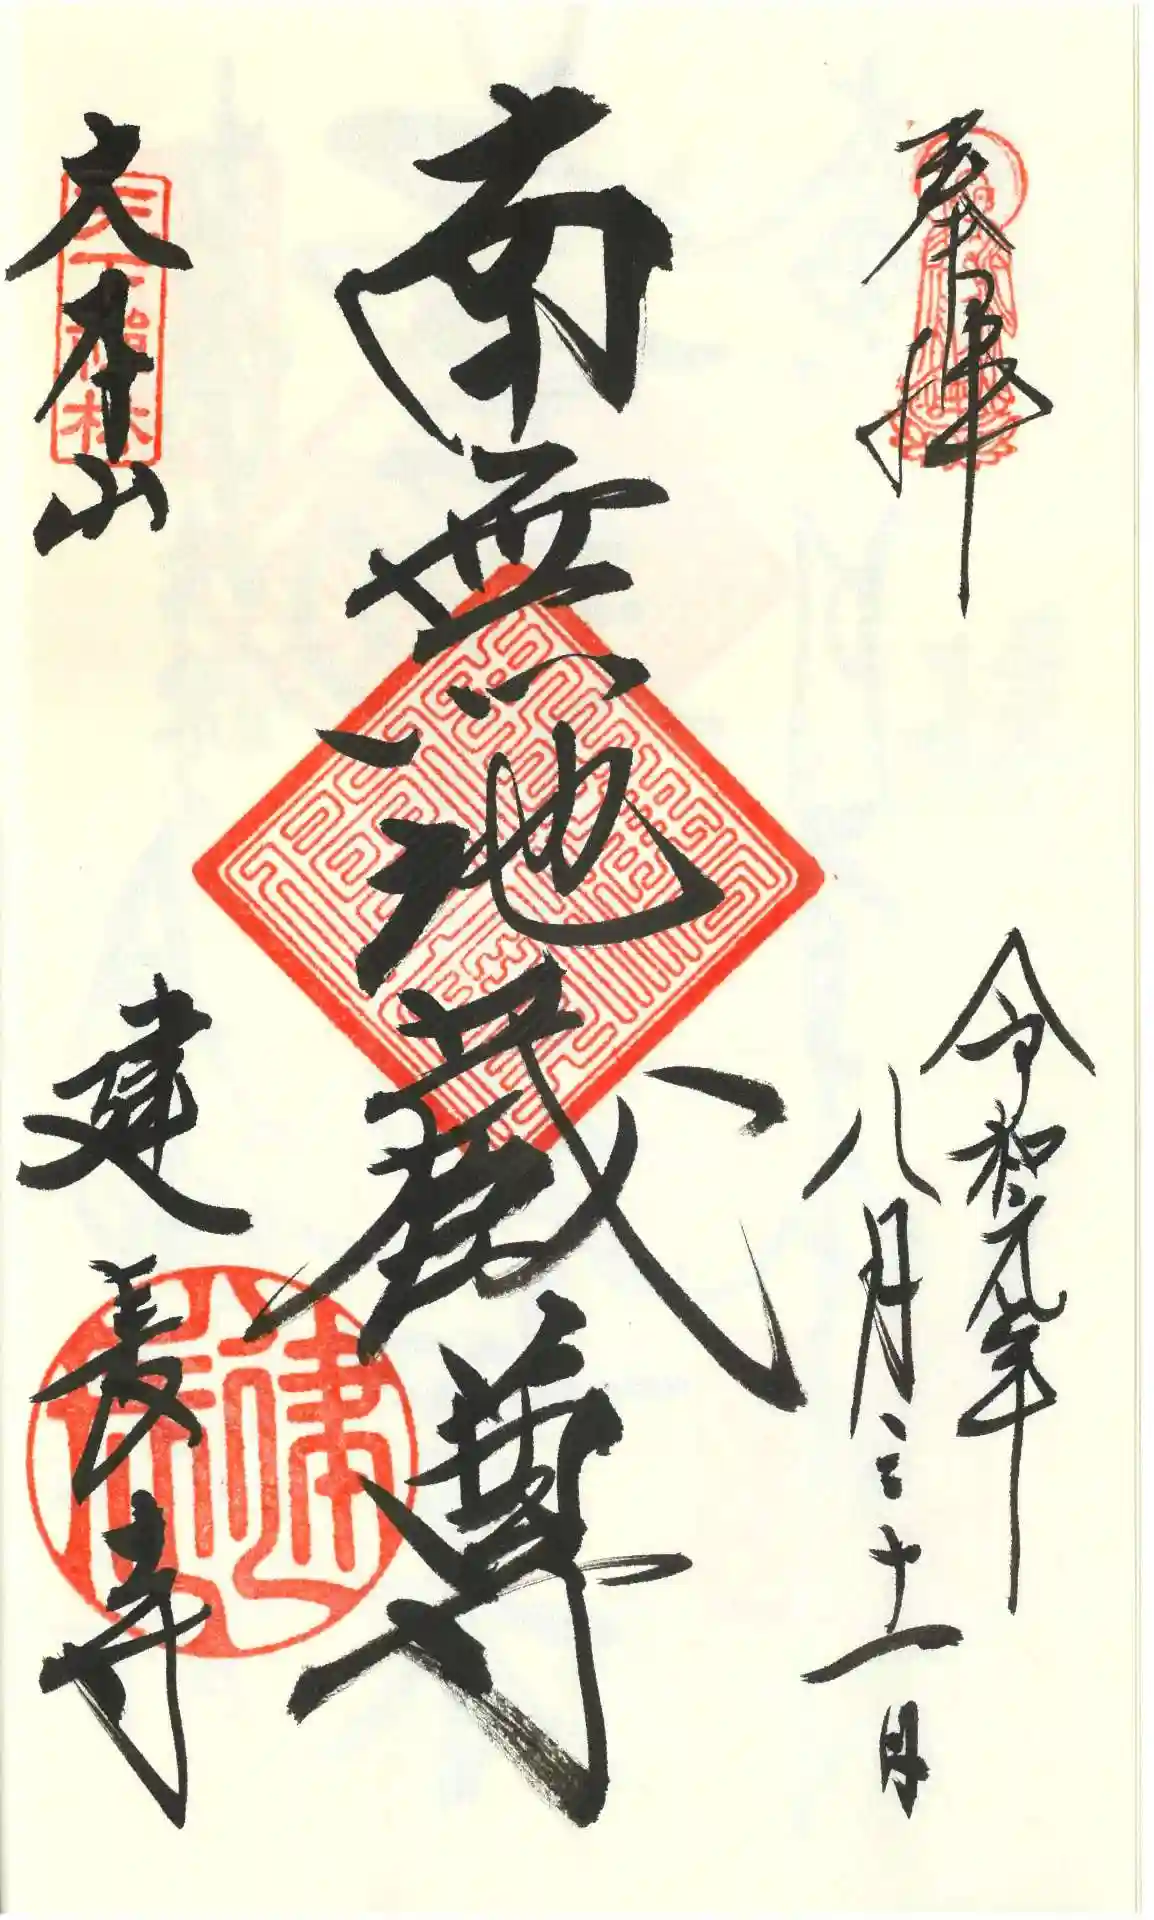 奉拝
令和元年
八月三十一日
南無地蔵尊
大本山
建長寺
天下禅林